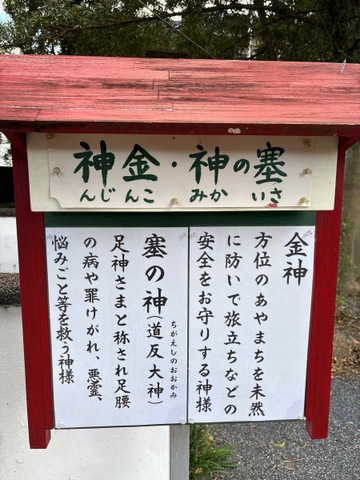 塞の神・金神
さい かみ こんじん
金神
方位のあやまちを未然
に防いで旅立ちなどの
安全をお守りする神様
塞の神(道反大神)
ちがえしのおおかみ
足神さまと称され足腰
の病や罪けがれ、悪霊、
悩みごと等を救う神様